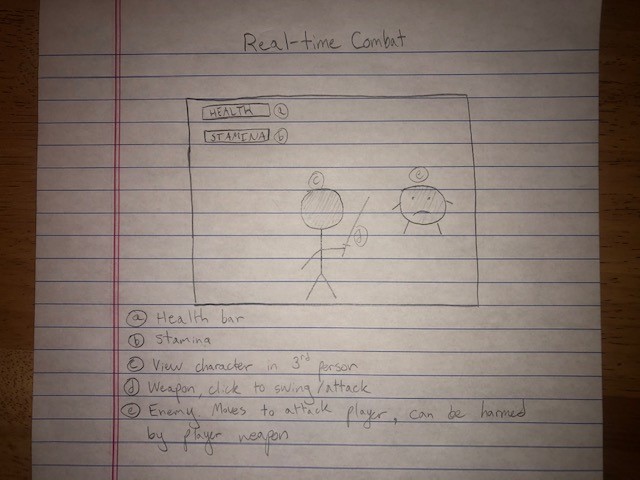 Real-time Combat
HEALTH a
STAMINA b
c
e
d
a Health bar
b Stamina
c View character in 3rd person
d Weapon, click to swing/attack
e Enemy. Moves to attack player, can be harmed
by player weapon